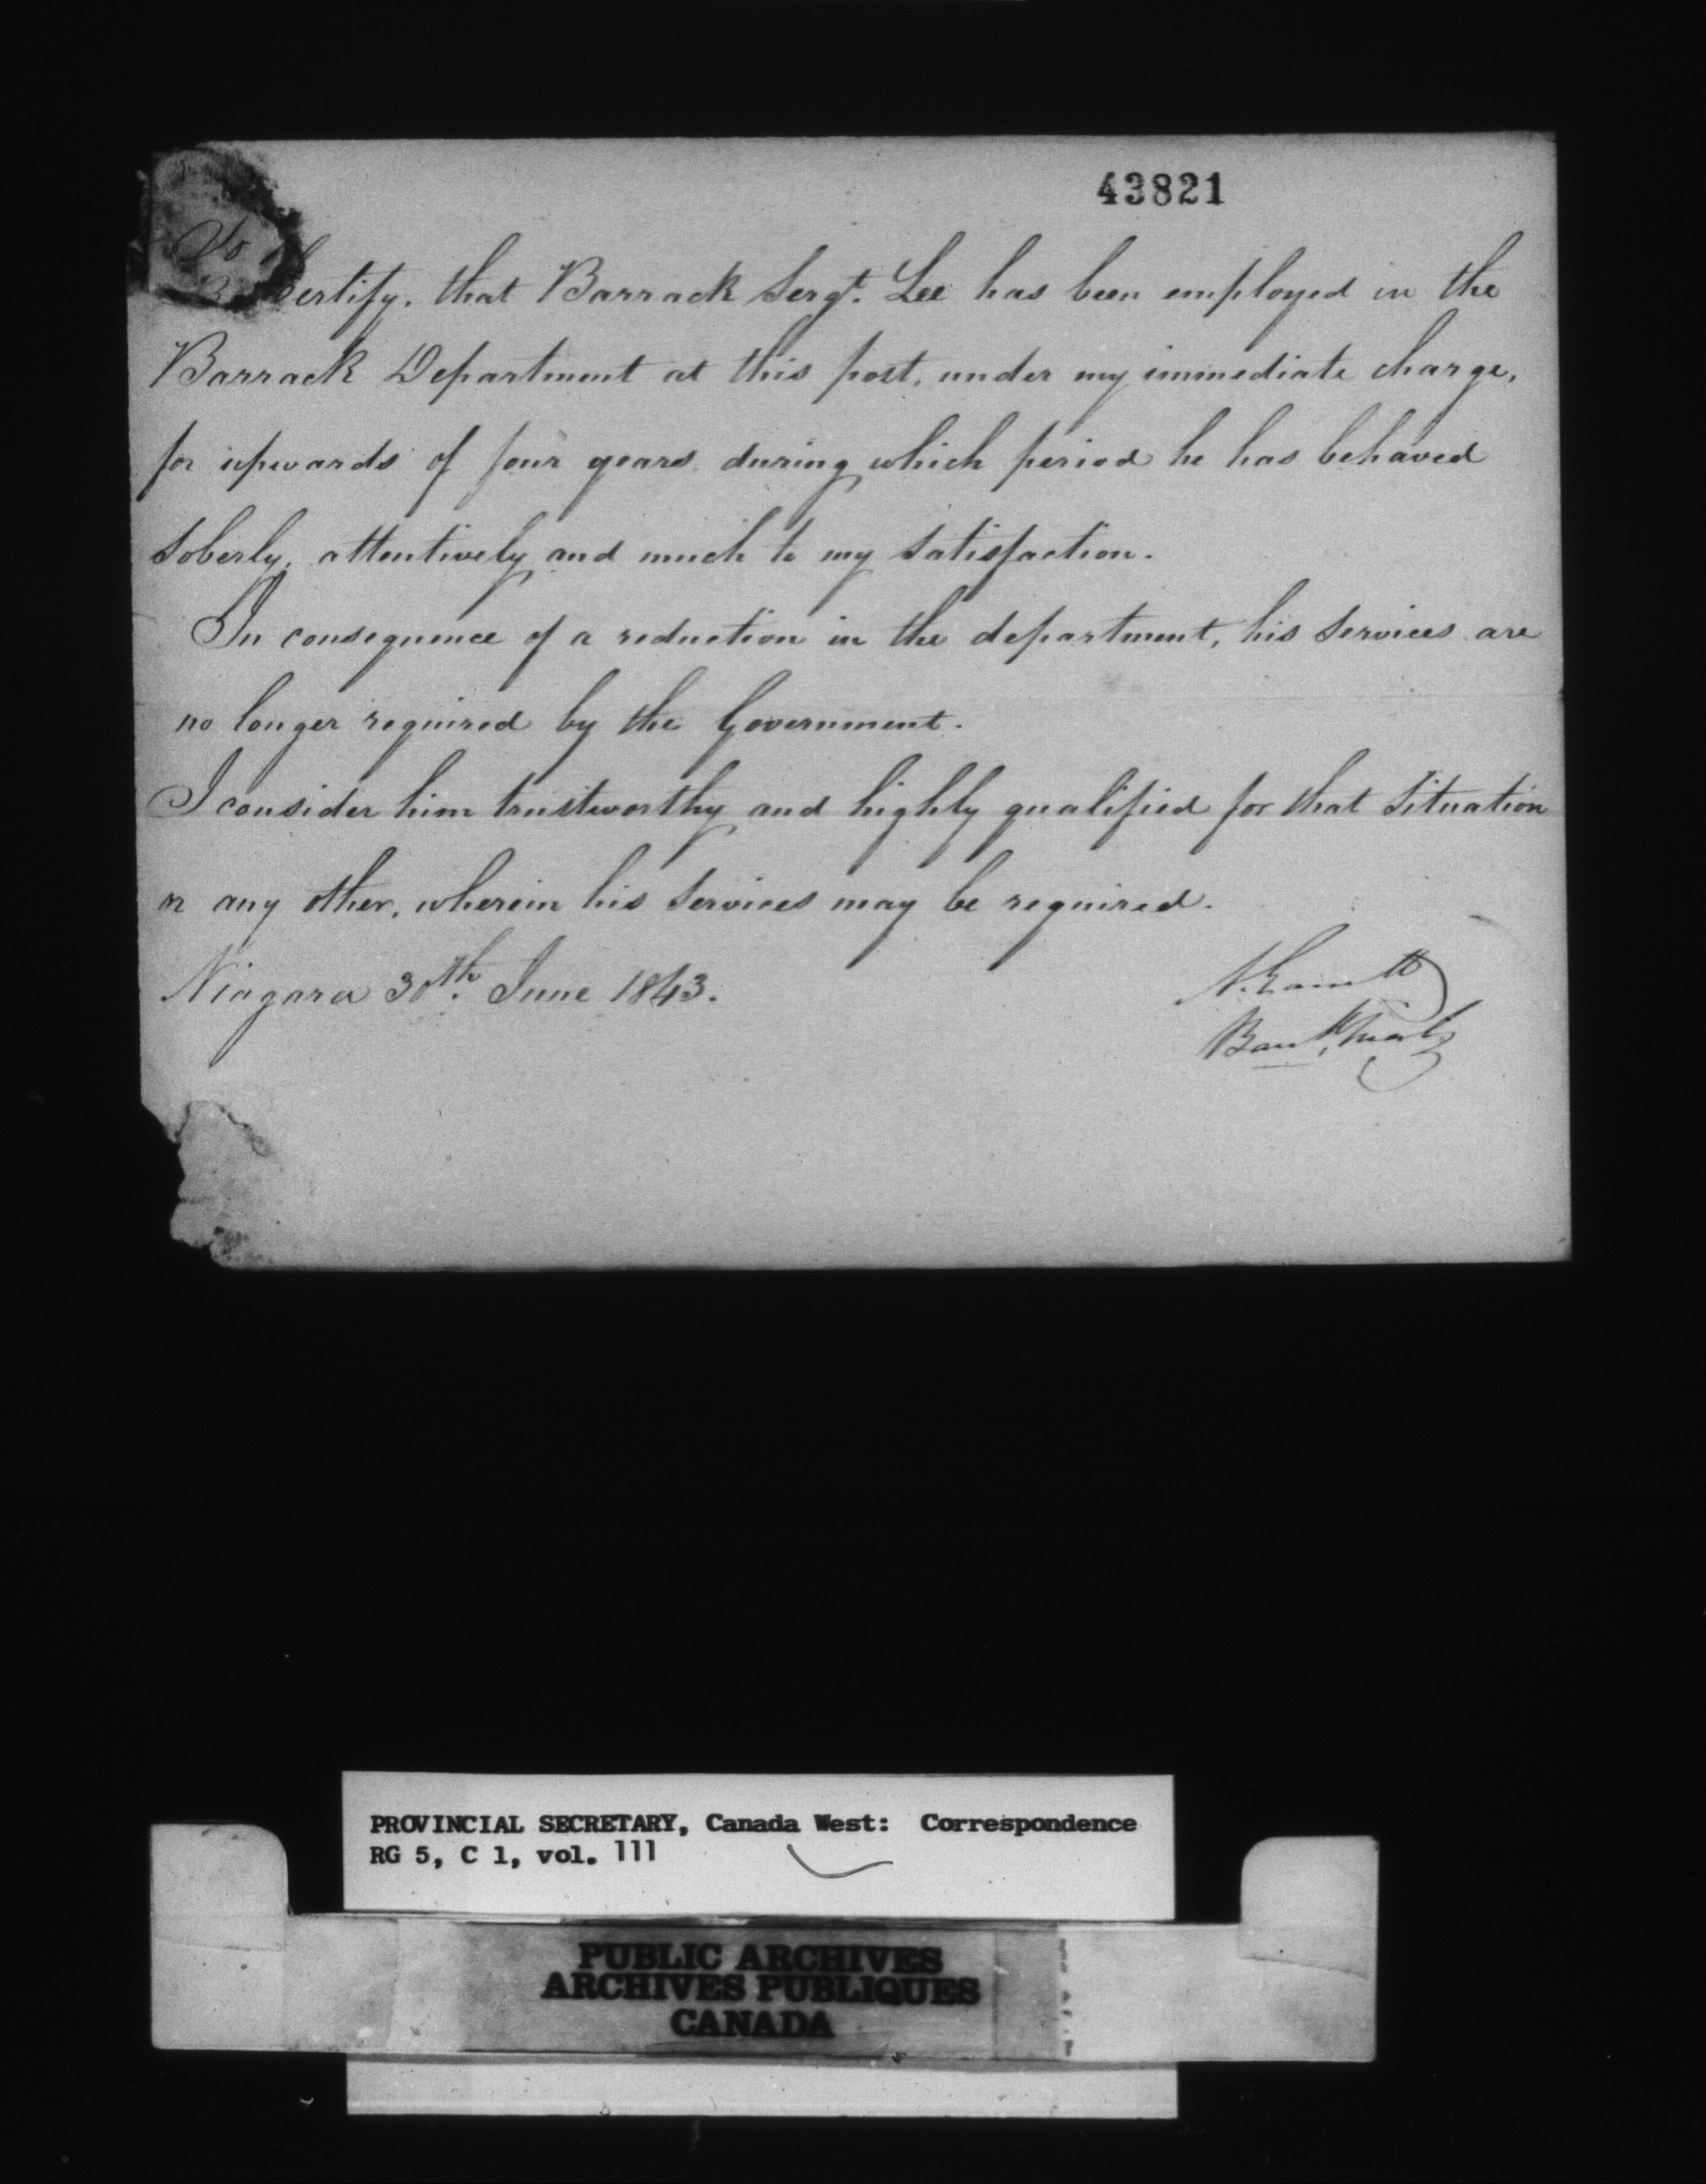 43821
To
Certify, that Barrack Sergt. Lee has been employed in the
Barrack Department at this post, under my immediate charge,
for upwards of four years during which period he has behaved
soberly, attentively and much to my satisfaction.
In consequence of a reduction in the department, his services are
no longer required by the Government.
I consider him trustworthy and highly qualified for that situation
or any other, wherein his services may be required.
Niagara 30th. June 1843.
PROVINCIAL SECRETARY, Canada West: Correspondence
RG 5, C 1, vol. 111
PUBLIC ARCHIVES
ARCHIVES PUBLIQUES
CANADA